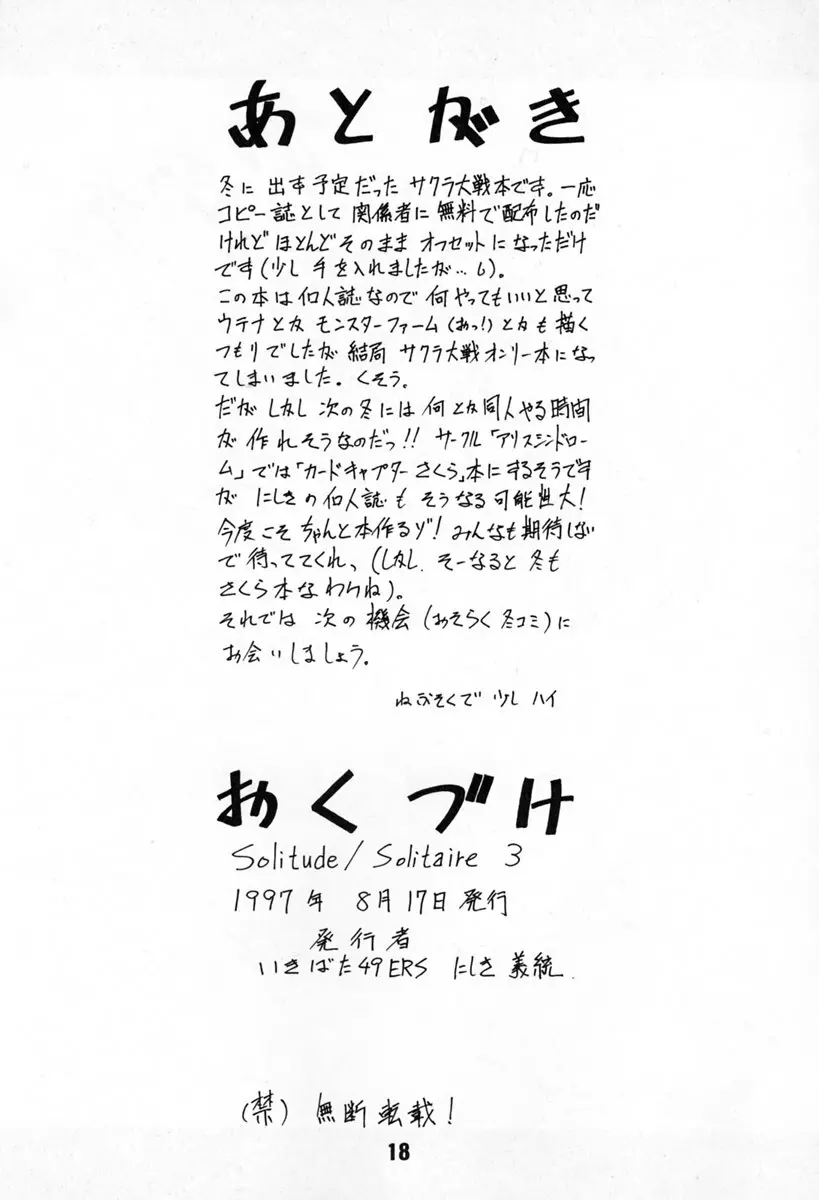 あとがき
冬に出す予定だったサクラ大戦本です。一応
コピー誌として関係者に無料で配布したのだ
けれどほとんどそのままオフセットになっただけ
です(少し手を入れましたが…。)。
この本は個人誌なので何やってもいいと思って
ウテナとかモンスターファーム(おっ!)とかも描く
つもりでしたが結局サクラ大戦オンリー本になっ
てしまいました。くそう。
だがしかし次の冬には何とか同人やる時間
が作れそうなのだっ!!サークル「アリスシンドロー
ム」では「カードキャプターさくら」本にするそうです
がにしきの個人誌もそうなる可能性大!
今度こそちゃんと本作るゾ!みんなも期待しない
で待っててくれ、(しかし、そーなると冬も
さくら本なわけね)。
それでは次の機会(おそらく冬コミ)に
お会いしましょう。
ねぶそくで少しハイ
おくづけ
Solitude/Solitaire 3
1997年 8月17日発行
発行者
いきばた49ERS にしき義統
(禁)無断転載!
18